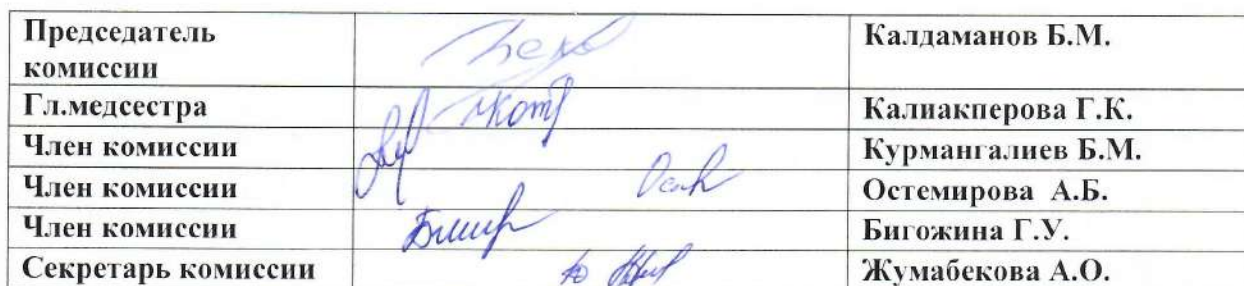 Председатель Калдаманов Б.М.
комиссии
Гл.медсестра Калиакперова Г.К.
Член комиссии Курмангалиев Б.М.
Член комиссии Остемирова А.Б.
Член комиссии Бигожина Г.У.
Секретарь комиссии Жумабекова А.О.